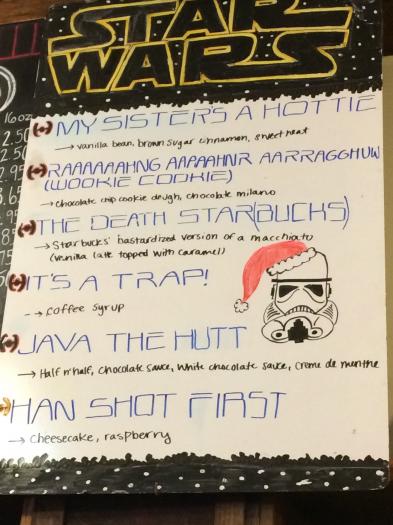 STAR
WARS
16oz
2.50
MY SISTER'S A HOTTIE
→ vanilla bean, brown sugar cinnamon, sweet heat
RAAAAAAHNG AAPAAHNR AARRAGGHUW
(WOOKIE COOKIE)
→ chocolate chip cookie dough, chocolate milano
THE DEATH STAR(BUCKS)
→ Starbucks' bastardized version of a macchiato
(vanilla latte topped with caramel)
IT'S A TRAP!
→ coffee syrup
JAVA THE HUTT
→ Half n' half, chocolate sauce, white chocolate sauce, creme de menthe
HAN SHOT FIRST
→ cheesecake, raspberry